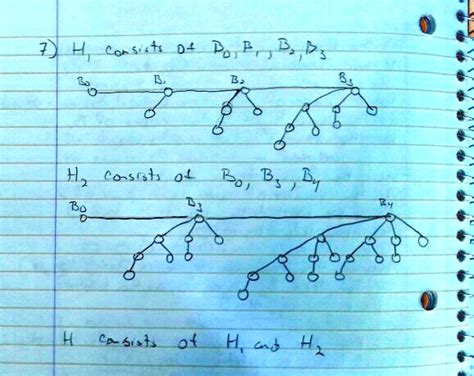 7) H₁ consists of B₀, B₁, B₂, B₃
B₀ B₁ B₂ B₃
H₂ consists of B₀, B₃, B₄
B₀ B₃ B₄
H consists of H₁ and H₂